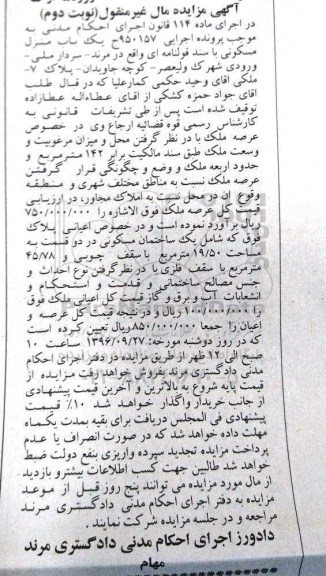 آگهی مزایده مال غیرمنقول(نوبت دوم)
در اجرای ماده ۱۱۴ قانون اجرای احکام مدنی به
موجب پرونده اجرایی ۹۵۰۱۵۷ح یک باب منزل
مسکونی با سند قولنامه ای واقع در مرند- سردار ملی-
ورودی شهرک ولیعصر - کوچه جاویدان- پلاک ۷-
ملکی آقای وحید حکمی کمارعلیا که در قبال طلب
آقای جواد حمزه کشکی از آقای عطاءاله عطازاده
توقیف شده است پس از طی تشریفات قانونی به
کارشناس رسمی قوه قضائیه ارجاع وی در خصوص
عرصه ملک با در نظر گرفتن محل و میزان مرغوبیت و
وسعت ملک طبق سند مالکیت برابر ۱۴۲ مترمربع و
حدود اربعه ملک و وضع و چگونگی قرار گرفتن
عرصه ملک نسبت به مناطق مختلف شهری و منطقه
وقوع آن در محل نسبت به املاک مجاور، در ارزیابی
قیمت کل عرصه ملک فوق الاشاره را ۷۵۰/۰۰۰/۰۰۰
ریال برآورد نموده است و در خصوص اعیانی پلاک
فوق که شامل یک ساختمان مسکونی در دو قسمت به
مساحت ۱۹/۵۰ مترمربع با سقف چوبی و ۴۵/۷۸
مترمربع با سقف فلزی با در نظر گرفتن نوع احداث و
جنس مصالح ساختمانی و قدمت و استحکام و
انشعابات آب و برق و گاز قیمت کل اعیانی ملک فوق
را ۱۰۰/۰۰۰/۰۰۰ ریال و در نتیجه قیمت کل عرصه و
اعیان را جمعا ۸۵۰/۰۰۰/۰۰۰ ریال تعیین کرده است
که در روز دوشنبه مورخه: ۱۳۹۶/۰۹/۲۷ ساعت ۱۰
صبح الی ۱۲ ظهر از طریق مزایده در دفتر اجرای احکام
مدنی دادگستری مرند بفروش خواهد رفت مزایده از
قیمت پایه شروع به بالاترین و آخرین قیمت پیشنهادی
از جانب خریدار واگذار خواهد شد ۱۰٪ قیمت
پیشنهادی فی المجلس دریافت برای بقیه بمدت یکماه
مهلت داده خواهد شد که در صورت انصراف یا عدم
پرداخت مزایده تجدید سپرده واریزی بنفع دولت ضبط
خواهد شد طالبین جهت کسب اطلاعات بیشتر و بازدید
از مال مورد مزایده می توانند پنج روز قبل از موعد
مزایده به دفتر اجرای احکام مدنی دادگستری مرند
مراجعه و در جلسه مزایده شرکت نمایند.
دادورز اجرای احکام مدنی دادگستری مرند
مهام